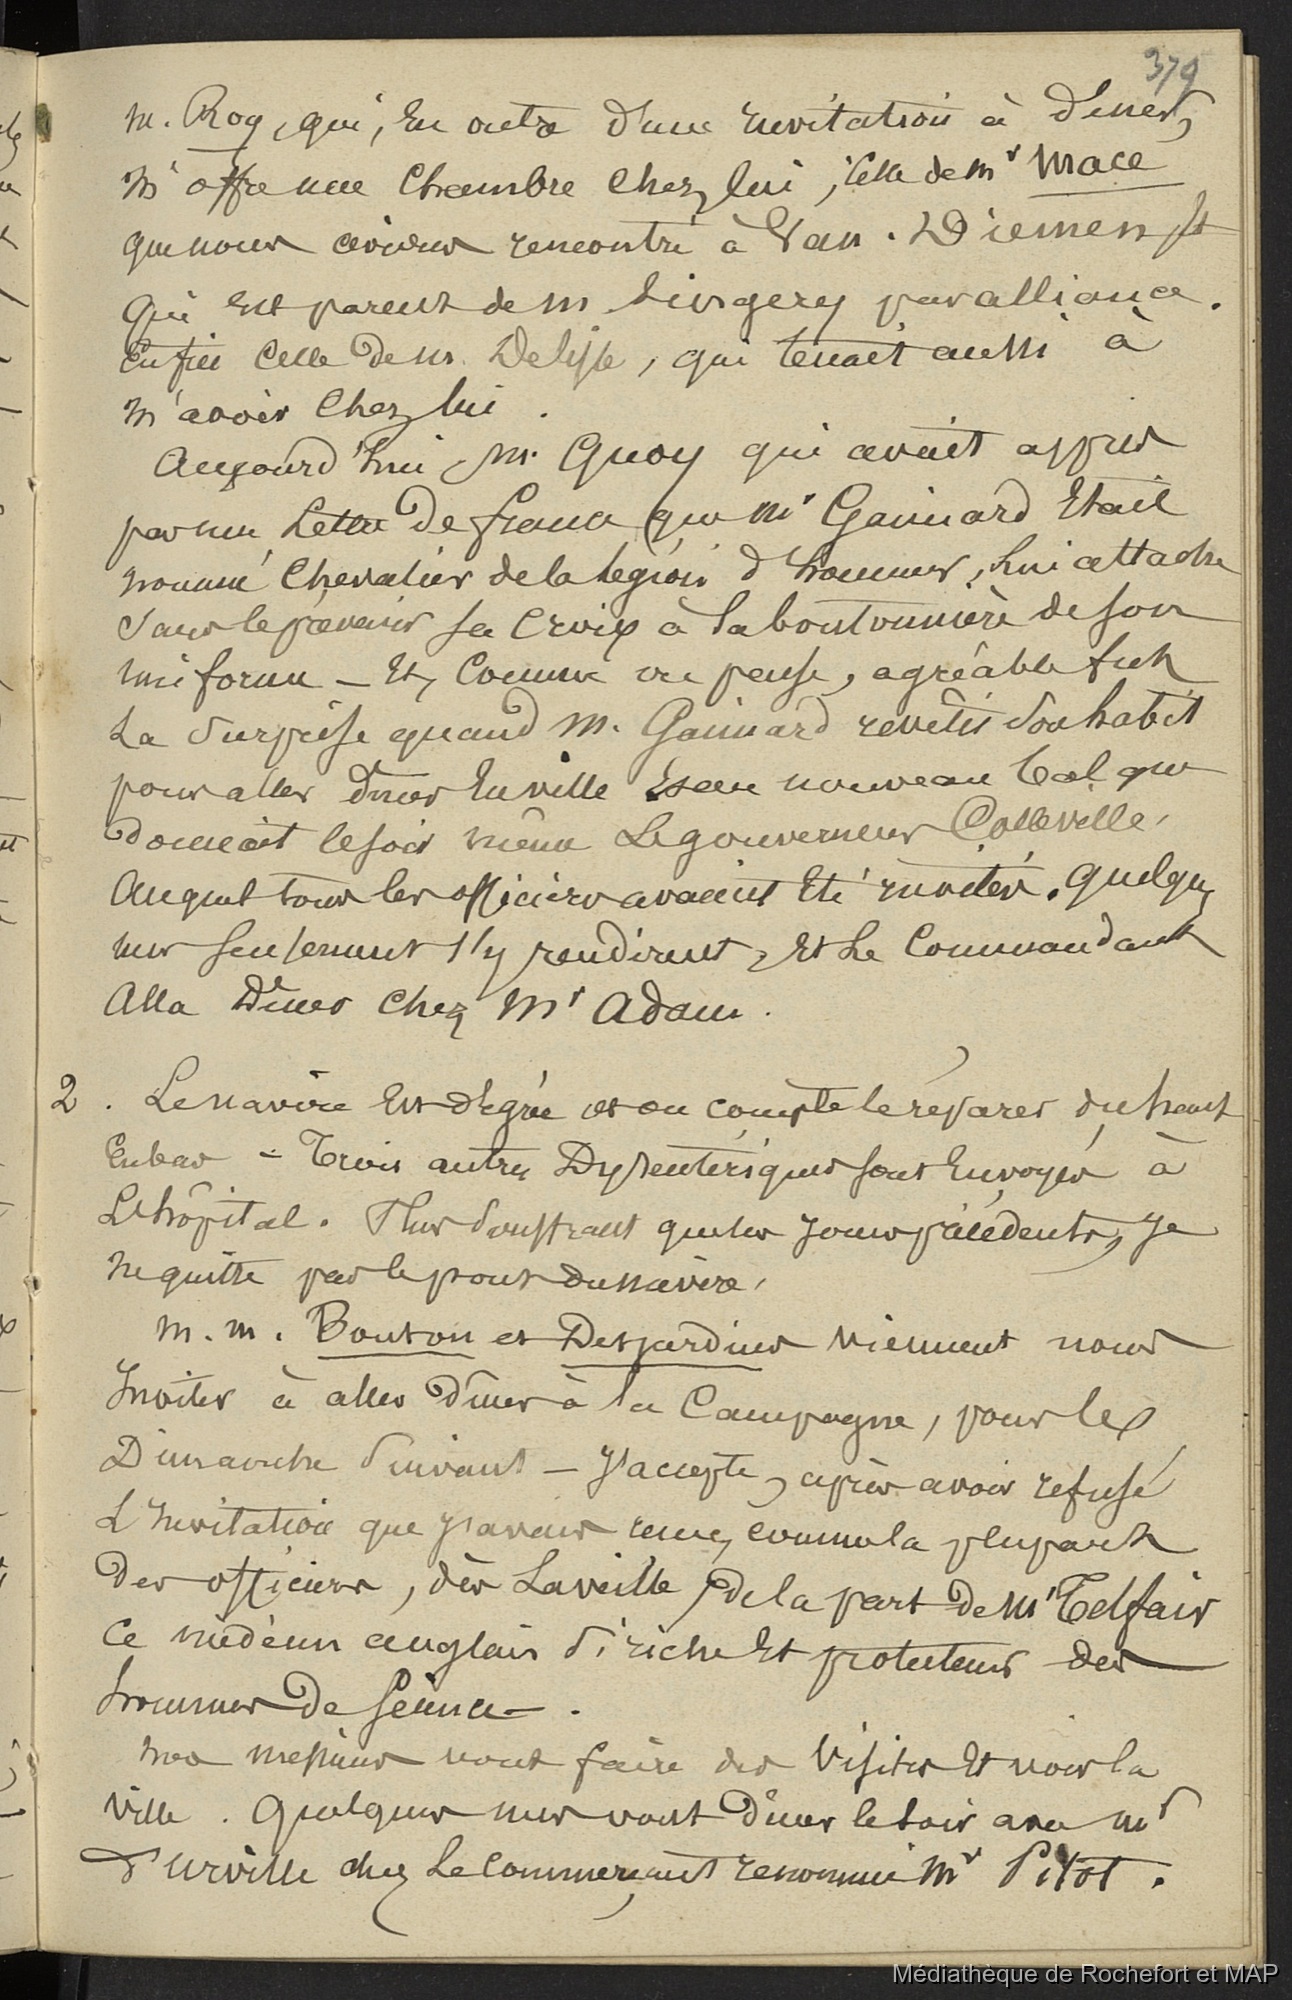 379
M. Rog, qui, En outre d'une Envitation à dîner,
M'offre une Chambre Chez lui, Celle de Mr Mace
que nous avions rencontré à Van. Diemen, Et
Qui Est parent de M Gingery par alliance.
Enfin Celle de M. Delisse, qui tenait aussi à
M'avoir Chez lui.
Aujourd'hui, M. Quoy qui avait appris
par une Lettre De france, que Mr Gaimard Etait
nommé Chevalier de la Légion d'honneur, Lui attache
Sans le prévenir Sa Croix à la boutonnière de son
uniforme _ Et, Comme on pense, agréable fut
La Surprise quand M. Gaimard revêtit Son habit
pour aller dîner En ville Et au nouveau bal que
donnait le soir même Le gouverneur Colleville,
Auquel tous les officiers avaient Eté invités. Quelques
uns seulement s'y rendirent, Et Le Commandant
Alla Dîner Chez Mr Adam.
2. Le navire Est dégréé et on compte le réparer du haut
En bas _ Trois autres Dysentériques sont Envoyés à
L'hôpital. Plus Souffrant que les jours précédents, Je
ne quitte pas le pont du navire.
M. M. Bouton et Desjardins viennent nous
Inviter à aller Dîner à la Campagne, pour le
Dimanche Suivant _ J'accepte, après avoir refusé
L'Invitation que j'avais reçue, comme la plupart
Des officiers, dès La veille, de la part de Mr Telfair
Ce médecin anglais Si riche Et protecteur des
hommes De Science.
Nos messieurs vont faire des Visites Et voir la
Ville. Quelques uns vont Dîner le soir avec Mr
D'urville chez Le Commerçant renommé Mr Pitot.
Médiathèque de Rochefort et MAP